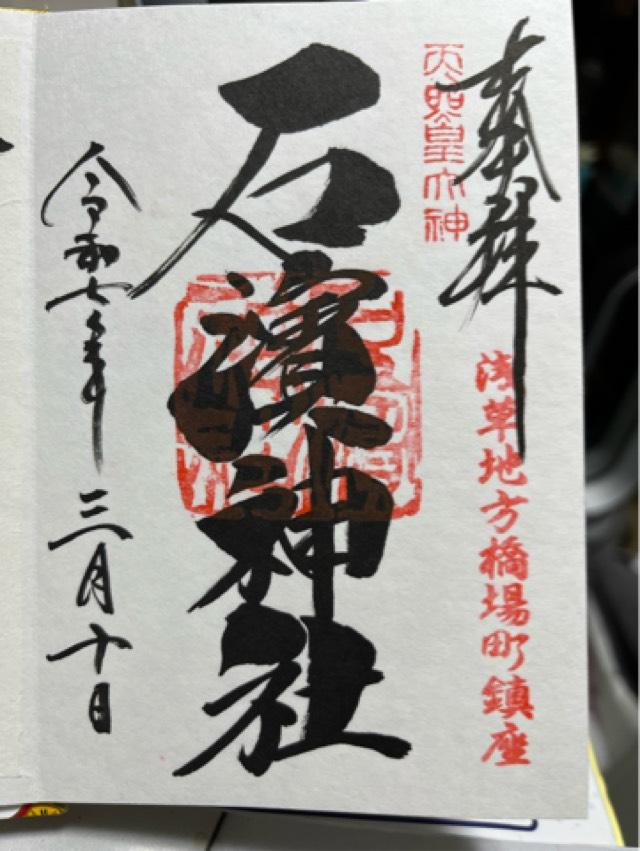 奉拝
天照皇大神
浅草地方橋場町鎮座
石濱神社
令和七年三月十日